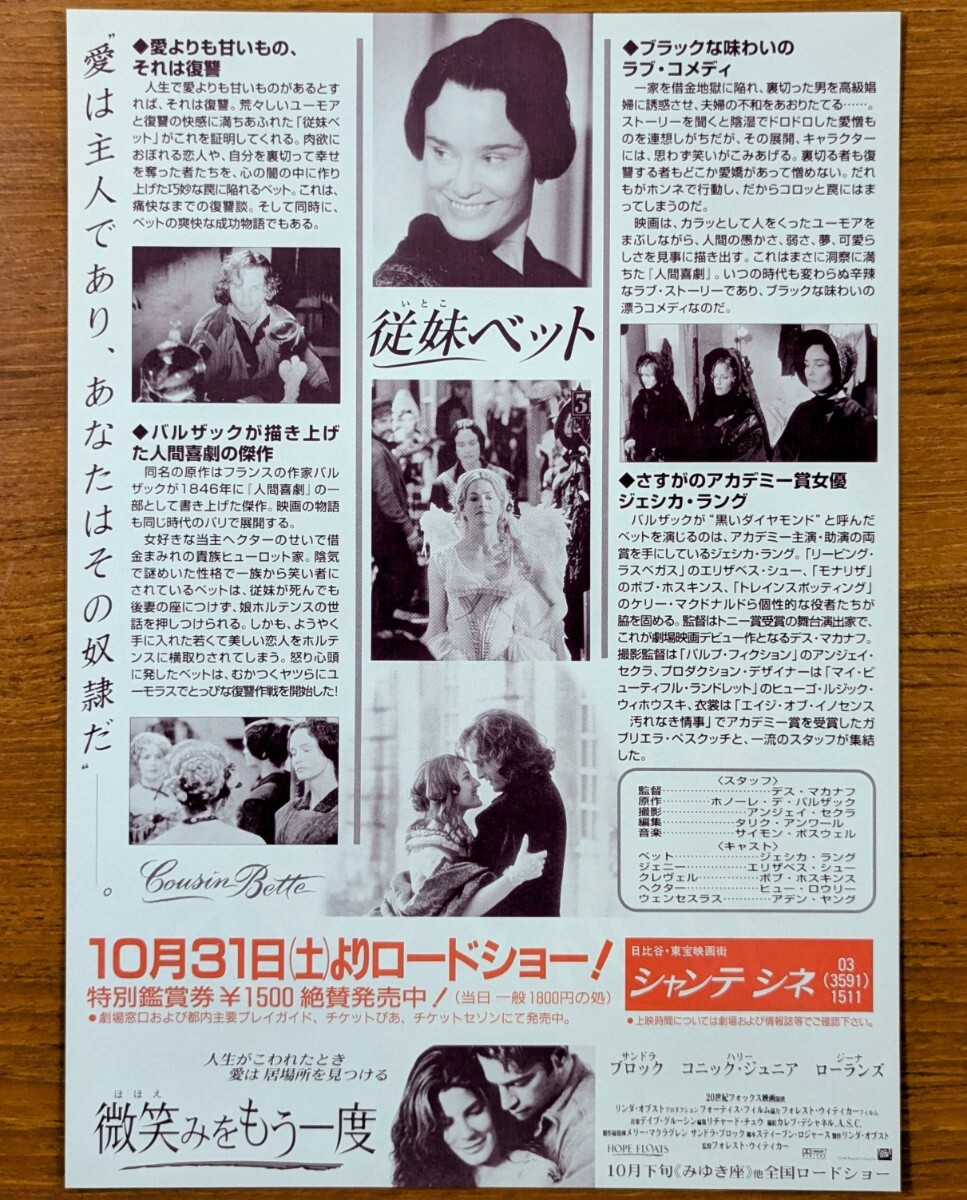 "愛は主人であり、あなたはその奴隷だ"――。
◆愛よりも甘いもの、
それは復讐
人生で愛よりも甘いものがあるとす
れば、それは復讐。荒々しいユーモア
と復讐の快感に満ちあふれた「従妹ベ
ット」がこれを証明してくれる。肉欲
におぼれる恋人や、自分を裏切って幸せ
を奪った者たちを、心の闇の中に作り
上げた巧妙な罠に陥れるベット。これは、
痛快なまでの復讐談。そして同時に、
ベットの爽快な成功物語でもある。
◆バルザックが描き上げ
た人間喜劇の傑作
同名の原作はフランスの作家バル
ザックが1846年に「人間喜劇」の一
部として書き上げた傑作。映画の物語
も同じ時代のパリで展開する。
女好きな当主ヘクターのせいで借
金まみれの貴族ヒューロット家。陰気
で謎めいた性格で一族から笑い者に
されているベットは、従妹が死んでも
後妻の座につけず、娘ホルテンスの世
話を押しつけられる。しかも、ようやく
手に入れた若くて美しい恋人をホルテ
ンスに横取りされてしまう。怒り心頭
に発したベットは、むかつくヤツらにユ
ーモラスでとっぴな復讐作戦を開始した!
Cousin Bette
いとこ
従妹ベット
3
◆ブラックな味わいの
ラブ・コメディ
一家を借金地獄に陥れ、裏切った男を高級娼
婦に誘惑させ、夫婦の不和をあおりたてる……。
ストーリーを聞くと陰湿でドロドロした愛憎も
のを連想しがちだが、その展開、キャラクター
には、思わず笑いがこみあげる。裏切る者も復
讐する者もどこか愛嬌があって憎めない。だれ
もがホンネで行動し、だからコロッと罠にはま
ってしまうのだ。
映画は、カラッとして人をくったユーモアを
まぶしながら、人間の愚かさ、弱さ、夢、可愛ら
しさを見事に描き出す。これはまさに洞察に満
ちた「人間喜劇」。いつの時代も変わらぬ辛辣
なラブ・ストーリーであり、ブラックな味わいの
漂うコメディなのだ。
◆さすがのアカデミー賞女優
ジェシカ・ラング
バルザックが"黒いダイヤモンド"と呼んだ
ベットを演じるのは、アカデミー主演・助演の両
賞を手にしているジェシカ・ラング。「リービング・
ラスベガス」のエリザベス・シュー、「モナリザ」
のボブ・ホスキンス、「トレインスポッティング」
のケリー・マクドナルドら個性的な役者たちが
脇を固める。監督はトニー賞受賞の舞台演出家で、
これが劇場映画デビュー作となるデス・マカナフ。
撮影監督は「パルプ・フィクション」のアンジェイ・
セクラ、プロダクション・デザイナーは「マイ・ビ
ューティフル・ランドレット」のヒューゴ・ルジック・
ウィホウスキ、衣裳は「エイジ・オブ・イノセンス
汚れなき情事」でアカデミー賞を受賞したガ
ブリエラ・ペスクッチと、一流のスタッフが集結
した。
〈スタッフ〉
監督…………デス・マカナフ
原作………ホノーレ・デ・バルザック
撮影…………アンジェイ・セクラ
編集…………タリク・アンワール
音楽…………サイモン・ボスウェル
〈キャスト〉
ベット…………ジェシカ・ラング
ジェニー…………エリザベス・シュー
クレヴェル…………ボブ・ホスキンス
ヘクター…………ヒュー・ロウリー
ウェンセスラス…………アデン・ヤング
10月31日(土)よりロードショー!
特別鑑賞券¥1500 絶賛発売中!(当日 一般1800円の処)
●劇場窓口および都内主要プレイガイド、チケットぴあ、チケットセゾンにて発売中。
日比谷・東宝映画街
シャンテ シネ
03
(3591)
1511
●上映時間については劇場および情報誌等でご確認下さい。
人生がこわれたとき
愛は 居場所を見つける
ほほえ
微笑みをもう一度
サンドラ
ブロック
ハリー
コニック・ジュニア
ジーナ
ローランズ
20世紀フォックス映画提供
リンダ・オブストプロダクション フォーティス・フィルム協力 フォレスト・ウィティカーフィルム
音楽デイブ・グルーシン 編集リチャード・チュウ 撮影カレブ・デシャネル、A.S.C.
製作総指揮メリー・マクラグレン サンドラ・ブロック 脚本スティーブン・ロジャース 製作リンダ・オブスト
監督フォレスト・ウィティカー
HOPE FLOATS
10月下旬《みゆき座》他全国ロードショー